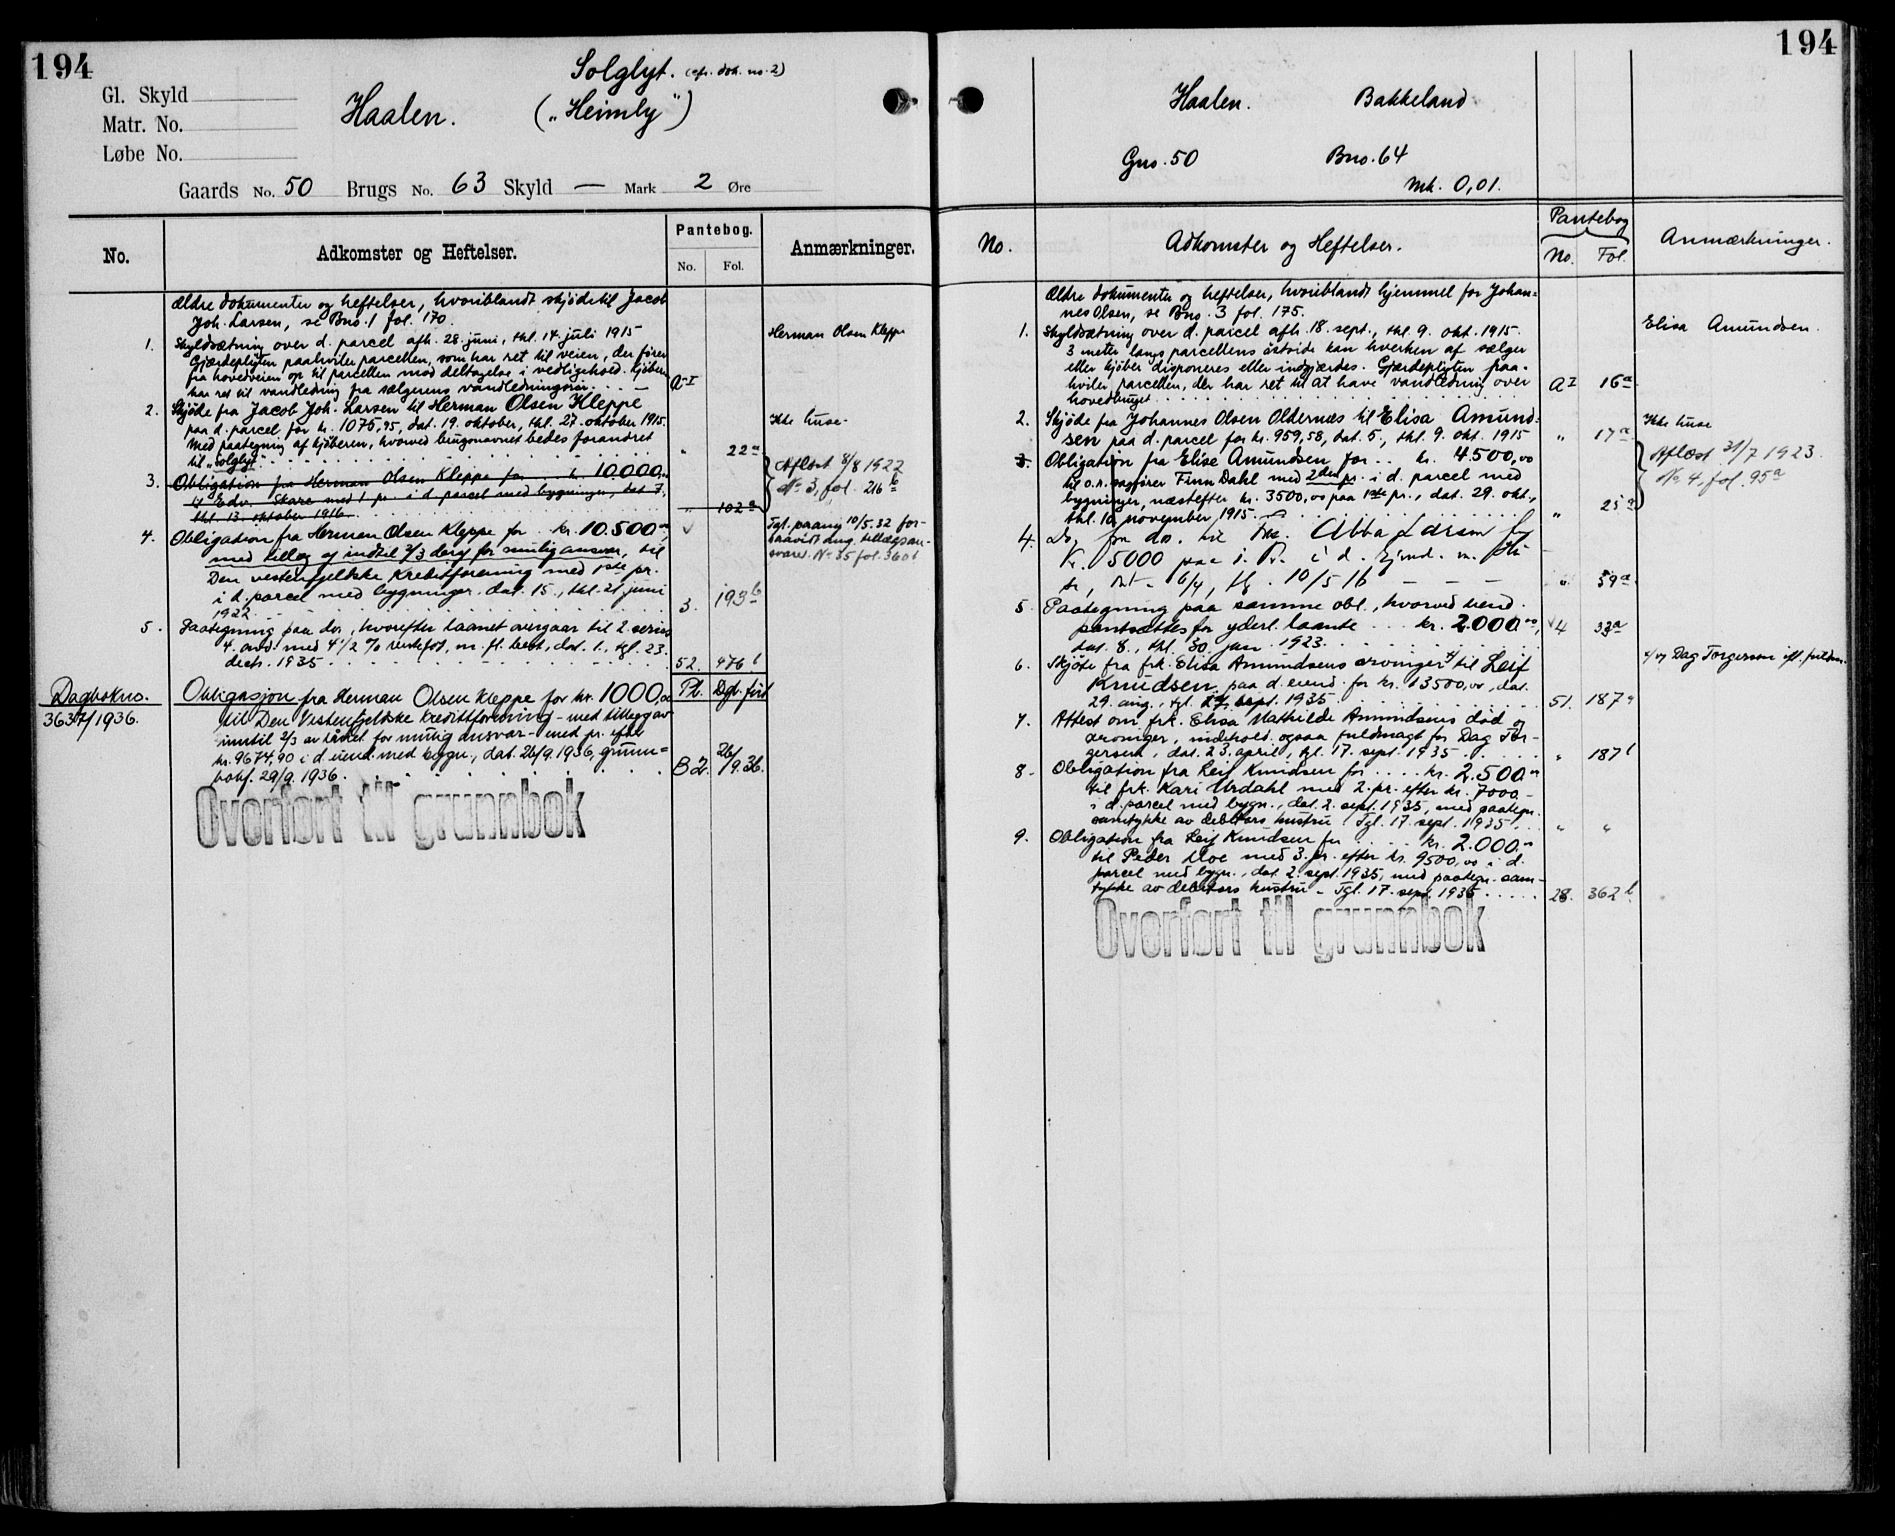 194
Solglyt. (cfr. dok. no. 2)
Gl. Skyld
Matr. No.
Løbe No.
Haalen. („Heimly")
Gaards No. 50 Brugs No. 63 Skyld — Mark 2 Øre
No.
Adkomster og Heftelser.
Pantebog.
No. Fol.
Anmærkninger.
Ældre dokumenter og heftelser, hvoriblandt skjøde til Jacob
Joh. Larsen, se Bno. 1 fol. 170.
Herman Olsen Kleppe
1. Skyldsætning over d. parcel afh. 28. juni, thl. 14. juli 1915
Gjærdepligten paahviler parcellen, som har ret til veien, der fører
fra hovedveien op til parcellen mod deltagelse i vedligehold. Kjøberen
har ret til vandledning fra sælgerens vandledningsrør. A-I
2. Skjøde fra Jacob Joh. Larsen til Herman Olsen Kleppe
paa d. parcel for kr. 1075,95, dat. 19. oktober, thl. 27. oktober 1915.
Ikke huse.
Med paategning af kjøberen, hvorved brugsnavnet bedes forandret
til „Solglyt". " 22a
3. Obligation fra Herman Olsen Kleppe for kr. 10000,00
til Edv. Skare med 1 pr. i d. parcel med bygninger, dat. 7,
thl. 13. oktober 1916. " 102a
Aflæst 8/8 1922
No 3, fol. 216b
4. Obligation fra Herman Olsen Kleppe for kr. 10.500,00,
med tillæg af indtil 2/3 deraf for mulig ansvar, til
Den vestenfjelske Kreditforening med 1ste pr.
i d. parcel med bygninger, dat. 15., thl. 21. juni
1922. 3. 193b
Tgl. paaanf 10/5.32 for-
saavidt ang. tillægsan-
svaret. No 35 fol. 360b
5. Paategning paa do., hvorefter laanet overgaar til 2. serie
4. avd. med 4 1/2 % rentefot, m. fl. best., dat. 1., tgl. 23.
decbr. 1935 52. 476b
Dagbokno.
3637/1936.
Pl. Dgb. ført
Obligasjon fra Herman Olsen Kleppe for kr. 1000,00
til Den Vestenfjeldske Kredittforening – med tillegg av
inntil 2/3 av lånet for mulig ansvar – med pr. efter
kr. 9674,90 i d. eiend. med bygn., dat. 26/9. 1936, grunn=
bokf. 29/9. 1936. B2. 26/9.36.
Overført til grunnbok
194
Haalen. Bakkeland
Gno. 50 Bno. 64
Mk. 0,01.
No.
Adkomster og Heftelser.
Pantebog
No. Fol.
Anmærkninger.
Ældre dokumenter og heftelser, hvoriblandt hjemmel for Johan=
nes Olsen, se Bno. 3 fol. 175.
Elisa Amundsen.
1. Skyldsætning over d. parcel afh. 18. sept., thl. 9. okt. 1915.
3 meter langs parcellens østside kan hverken af sælger
eller kjøber disponeres eller indgjærdes. Gjærdepligten paa=
hviler parcellen, der har ret til at have vandledning over
hovedbruget AI 16a
2. Skjøde fra Johannes Olsen Oldernes til Elisa Amund=
sen paa d. parcel for kr. 959,58, dat. 5., thl. 9. okt. 1915 " 17a
Ikke huse
3. Obligation fra Elise Amundsen for kr. 4500,00
til o.r. sagfører Finn Dahl med 2den pr. i d. parcel med
bygninger, næstefter kr. 3500,00 paa 1ste pr., dat. 29. okt.,
thl. 10. november 1915. " 25a
Aflæst 31/7 1923.
No. 4, fol. 95a
4. Do. fra do. til Abba Larsen for
Kr. 5000 paa 1. Pr. i d. Ejend. m. Hu
se, Dat. 6/4, tl. 10/5 16 " 59a
5. Paategning paa samme obl., hvorved eiend.
pantsættes for yderl. laante kr. 2000,00,
dat. 8., thl. 30. jan. 1923. 4 33a
6. Skjøte fra frk. Elisa Amundsens arvinger x) til Leif
Knudsen paa d. eiend. for kr. 13500,00, dat.
29. aug., tgl. 17. sept. 1935 51. 187a
x) v/ Dag Torgersen ifl. fuldm.
7. Attest om frk. Elisa Mathilde Amundsens død og
arvinger, indehold. ogsaa fuldmagt for Dag Tor-
gersen, dat. 23. april, tgl. 17. sept. 1935 " 187b
8. Obligation fra Leif Knudsen for kr. 2.500,00
til frk. Kari Urdahl med 2. pr. efter kr. 7000,–
i d. parcel med bygn., dat. 2. sept. 1935, med paategn.
samtykke av debitors hustru. Tgl. 17. sept. 1935. " "
9. Obligation fra Leif Knudsen for kr. 2.000,00
til Peder Moe med 3. pr. efter kr. 9500,00 i d.
parcel med bygn., dat. 2. sept. 1935, med paategn. sam-
tykke av debitors hustru – Tgl. 17. sept. 1935 28. 362b.
Overført til grunnbok